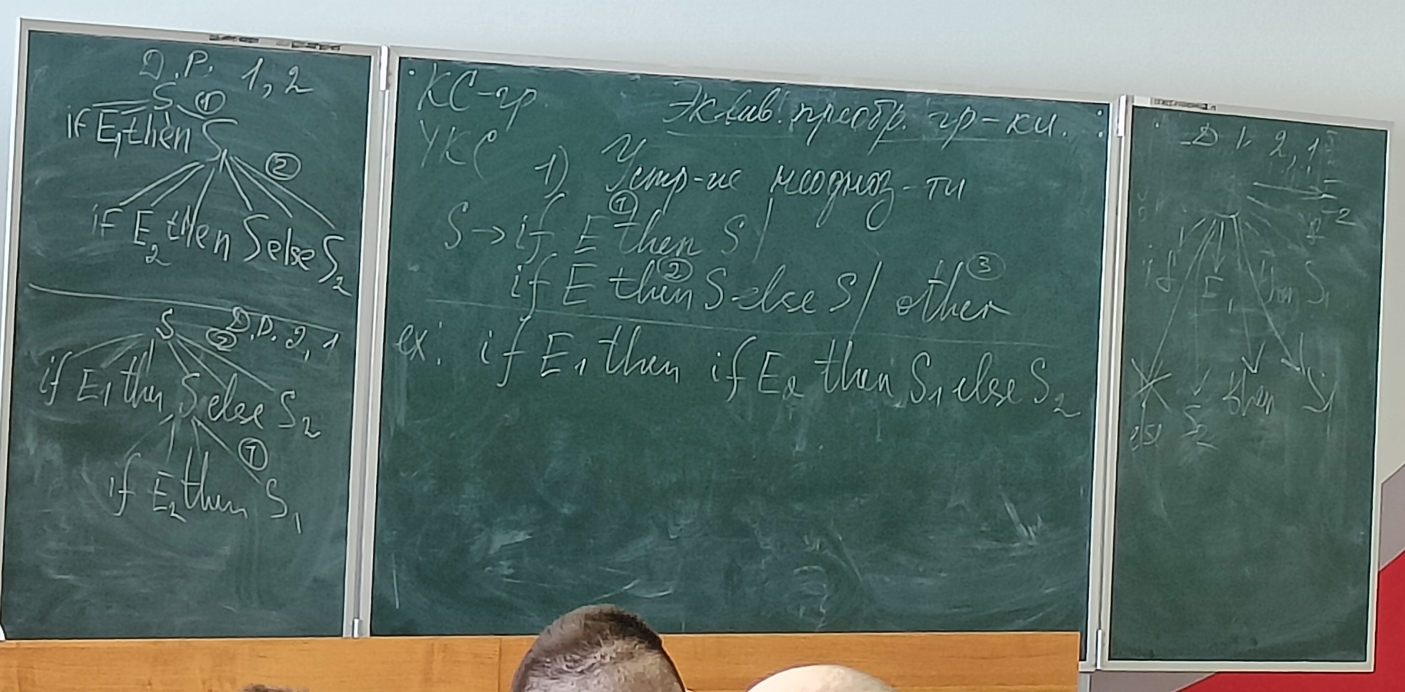 D.P. 1,2
S ①
if E₁ then S
②
if E₂ then S else S₂
S D.P. 2,1
②
if E₁ then S else S₂
①
if E₂ then S₁
КС-гр.
УКС
Эквив. преобр. гр-ки.
1) Устр-ие неоднозн-ти
S → if E ① then S |
if E then ② S else S | other ③
ex: if E₁ then if E₂ then S₁ else S₂
2, 1
if E₁ then S₁
then S₁
S₂